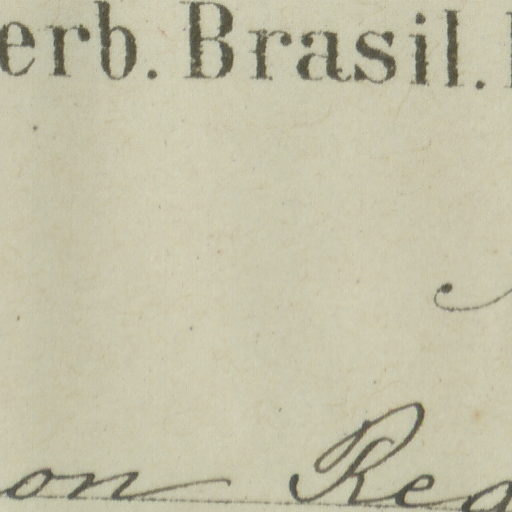 erb. Brasil.
on Reg